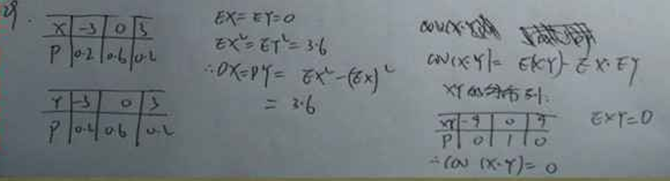 29.
X -3 0 3
P 0.2 0.6 0.2
Y -3 0 3
P 0.2 0.6 0.2
EX= EY=0
EX²= EY²= 3.6
∴DX=DY= EX²-(EX)²
= 3.6
COV(X·Y)= E(XY)- EX·EY
XY的分布列:
XY -9 0 9
P 0 1 0
EXY=0
∴COV (X·Y)= 0